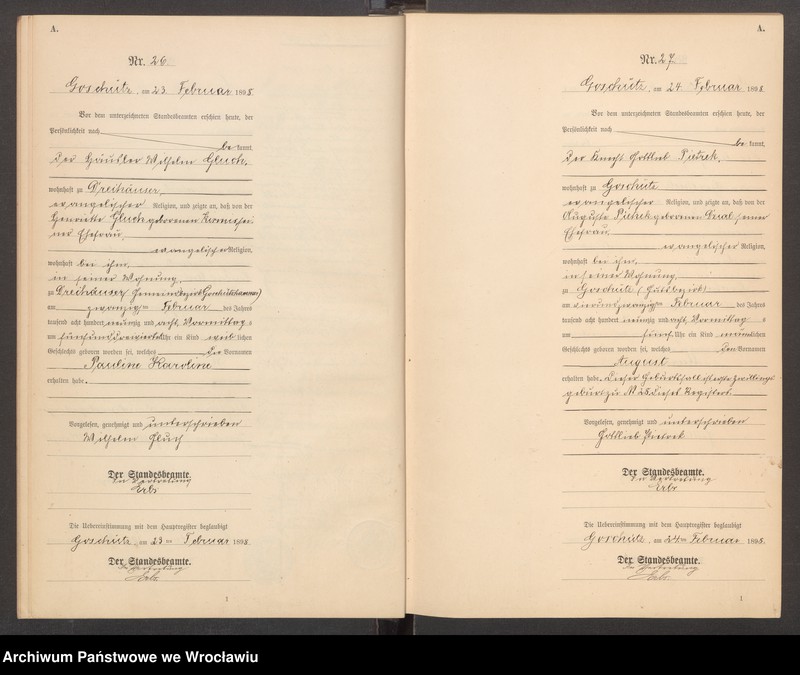 A.
Nr. 26
Goschütz, am 23 Februar 1898
Vor dem unterzeichneten Standesbeamten erschien heute, der
Persönlichkeit nach
be kannt,
der Häusler Wilhelm Gluch,
wohnhaft zu Dreihäuser,
evangelischer Religion, und zeigte an, daß von der
Henriette Gluch geborenen sei-
ner Ehefrau,
evangelischer Religion,
wohnhaft bei ihm,
in seiner Wohnung,
zu Dreihäuser (Gemeindebezirk Goschützhammer)
am zwanzigten Februar des Jahres
tausend acht hundert neunzig und acht, Vormittags
um fünf Uhr ein Kind weiblichen
Geschlechts geboren worden sei, welches die Vornamen
Pauline Karoline
erhalten habe.
Vorgelesen, genehmigt und unterschrieben
Wilhelm Gluch
Der Standesbeamte.
In Vertretung
Erbs
Die Uebereinstimmung mit dem Hauptregister beglaubigt
Goschütz, am 23ten Februar 1898
Der Standesbeamte.
In Vertretung
Erbs
1
A.
Nr. 27
Goschütz, am 24 Februar 1898
Vor dem unterzeichneten Standesbeamten erschien heute, der
Persönlichkeit nach
be kannt,
der Knecht Gottlieb Pietrek,
wohnhaft zu Goschütz
evangelischer Religion, und zeigte an, daß von der
Auguste Pietrek geborenen seiner
Ehefrau,
evangelischer Religion,
wohnhaft bei ihm,
in seiner Wohnung,
zu Goschütz (Gutsbezirk)
am vierundzwanzigten Februar des Jahres
tausend acht hundert neunzig und acht, Vormittags
um fünf Uhr ein Kind männlichen
Geschlechts geboren worden sei, welches den Vornamen
August
erhalten habe. Dieser Geburtsfall ist erste Zwillings-
geburt zu № 28 dieses Registers.
Vorgelesen, genehmigt und unterschrieben
Gottlieb Pietrek
Der Standesbeamte.
In Vertretung
Erbs
Die Uebereinstimmung mit dem Hauptregister beglaubigt
Goschütz, am 24ten Februar 1898.
Der Standesbeamte.
In Vertretung
Erbs
1
Archiwum Państwowe we Wrocławiu